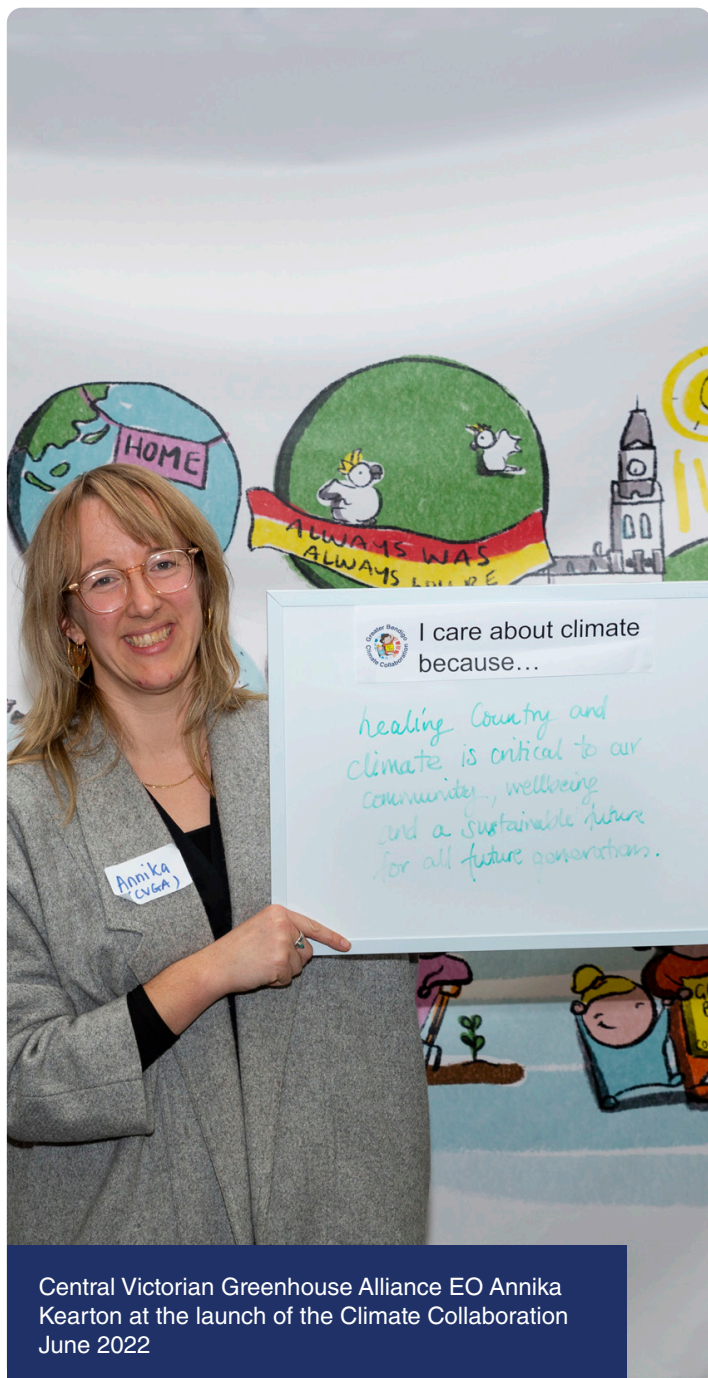 HOME
ALWAYS WAS
ALWAYS
Greater Bendigo
Climate Collaboration
I care about climate
because...
healing Country and
climate is critical to our
community, wellbeing
and a sustainable future
for all future generations.
Annika
(CVGA)
Central Victorian Greenhouse Alliance EO Annika
Kearton at the launch of the Climate Collaboration
June 2022